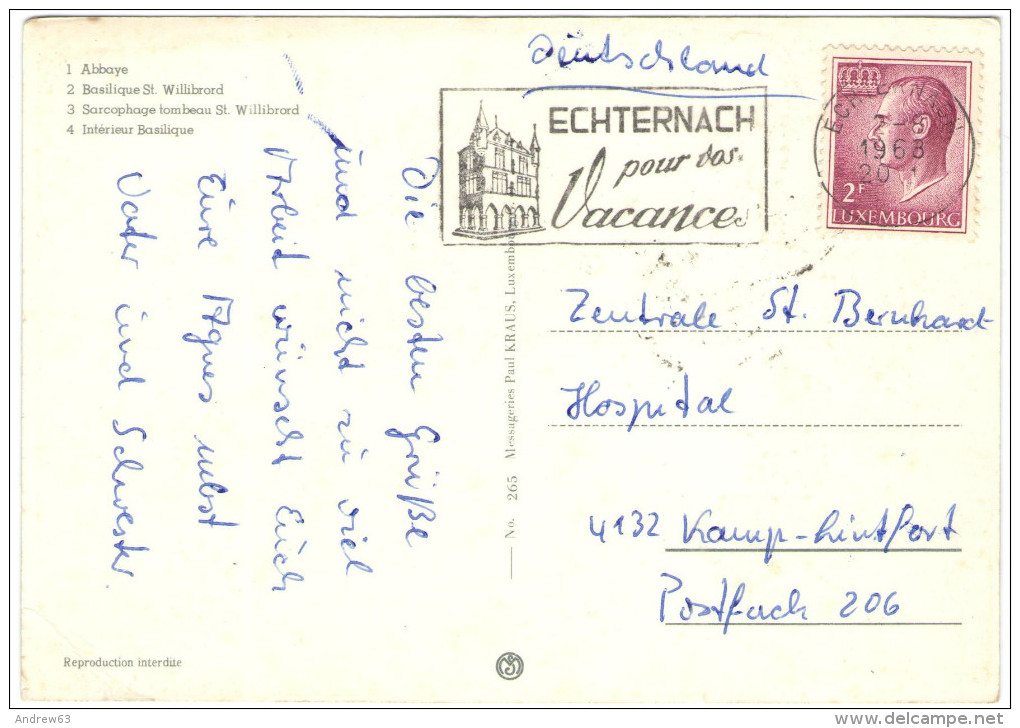 1 Abbaye
2 Basilique St. Willibrord
3 Sarcophage tombeau St. Willibrord
4 Intérieur Basilique
Deutschland
ECHTERNACH
pour vos
Vacances
1968
20
2F
LUXEMBOURG
Die besten Grüße
und nicht zu viel
Arbeid wünscht Euch
Eure Agnes nebst
Vater und Schwester
No. 265 Messageries Paul KRAUS, Luxembou
Zentrale St. Bernhardt
Hospital
4132 Kamp-Lintfort
Postfach 206
Reproduction interdite
Andrew63
delcampe.net